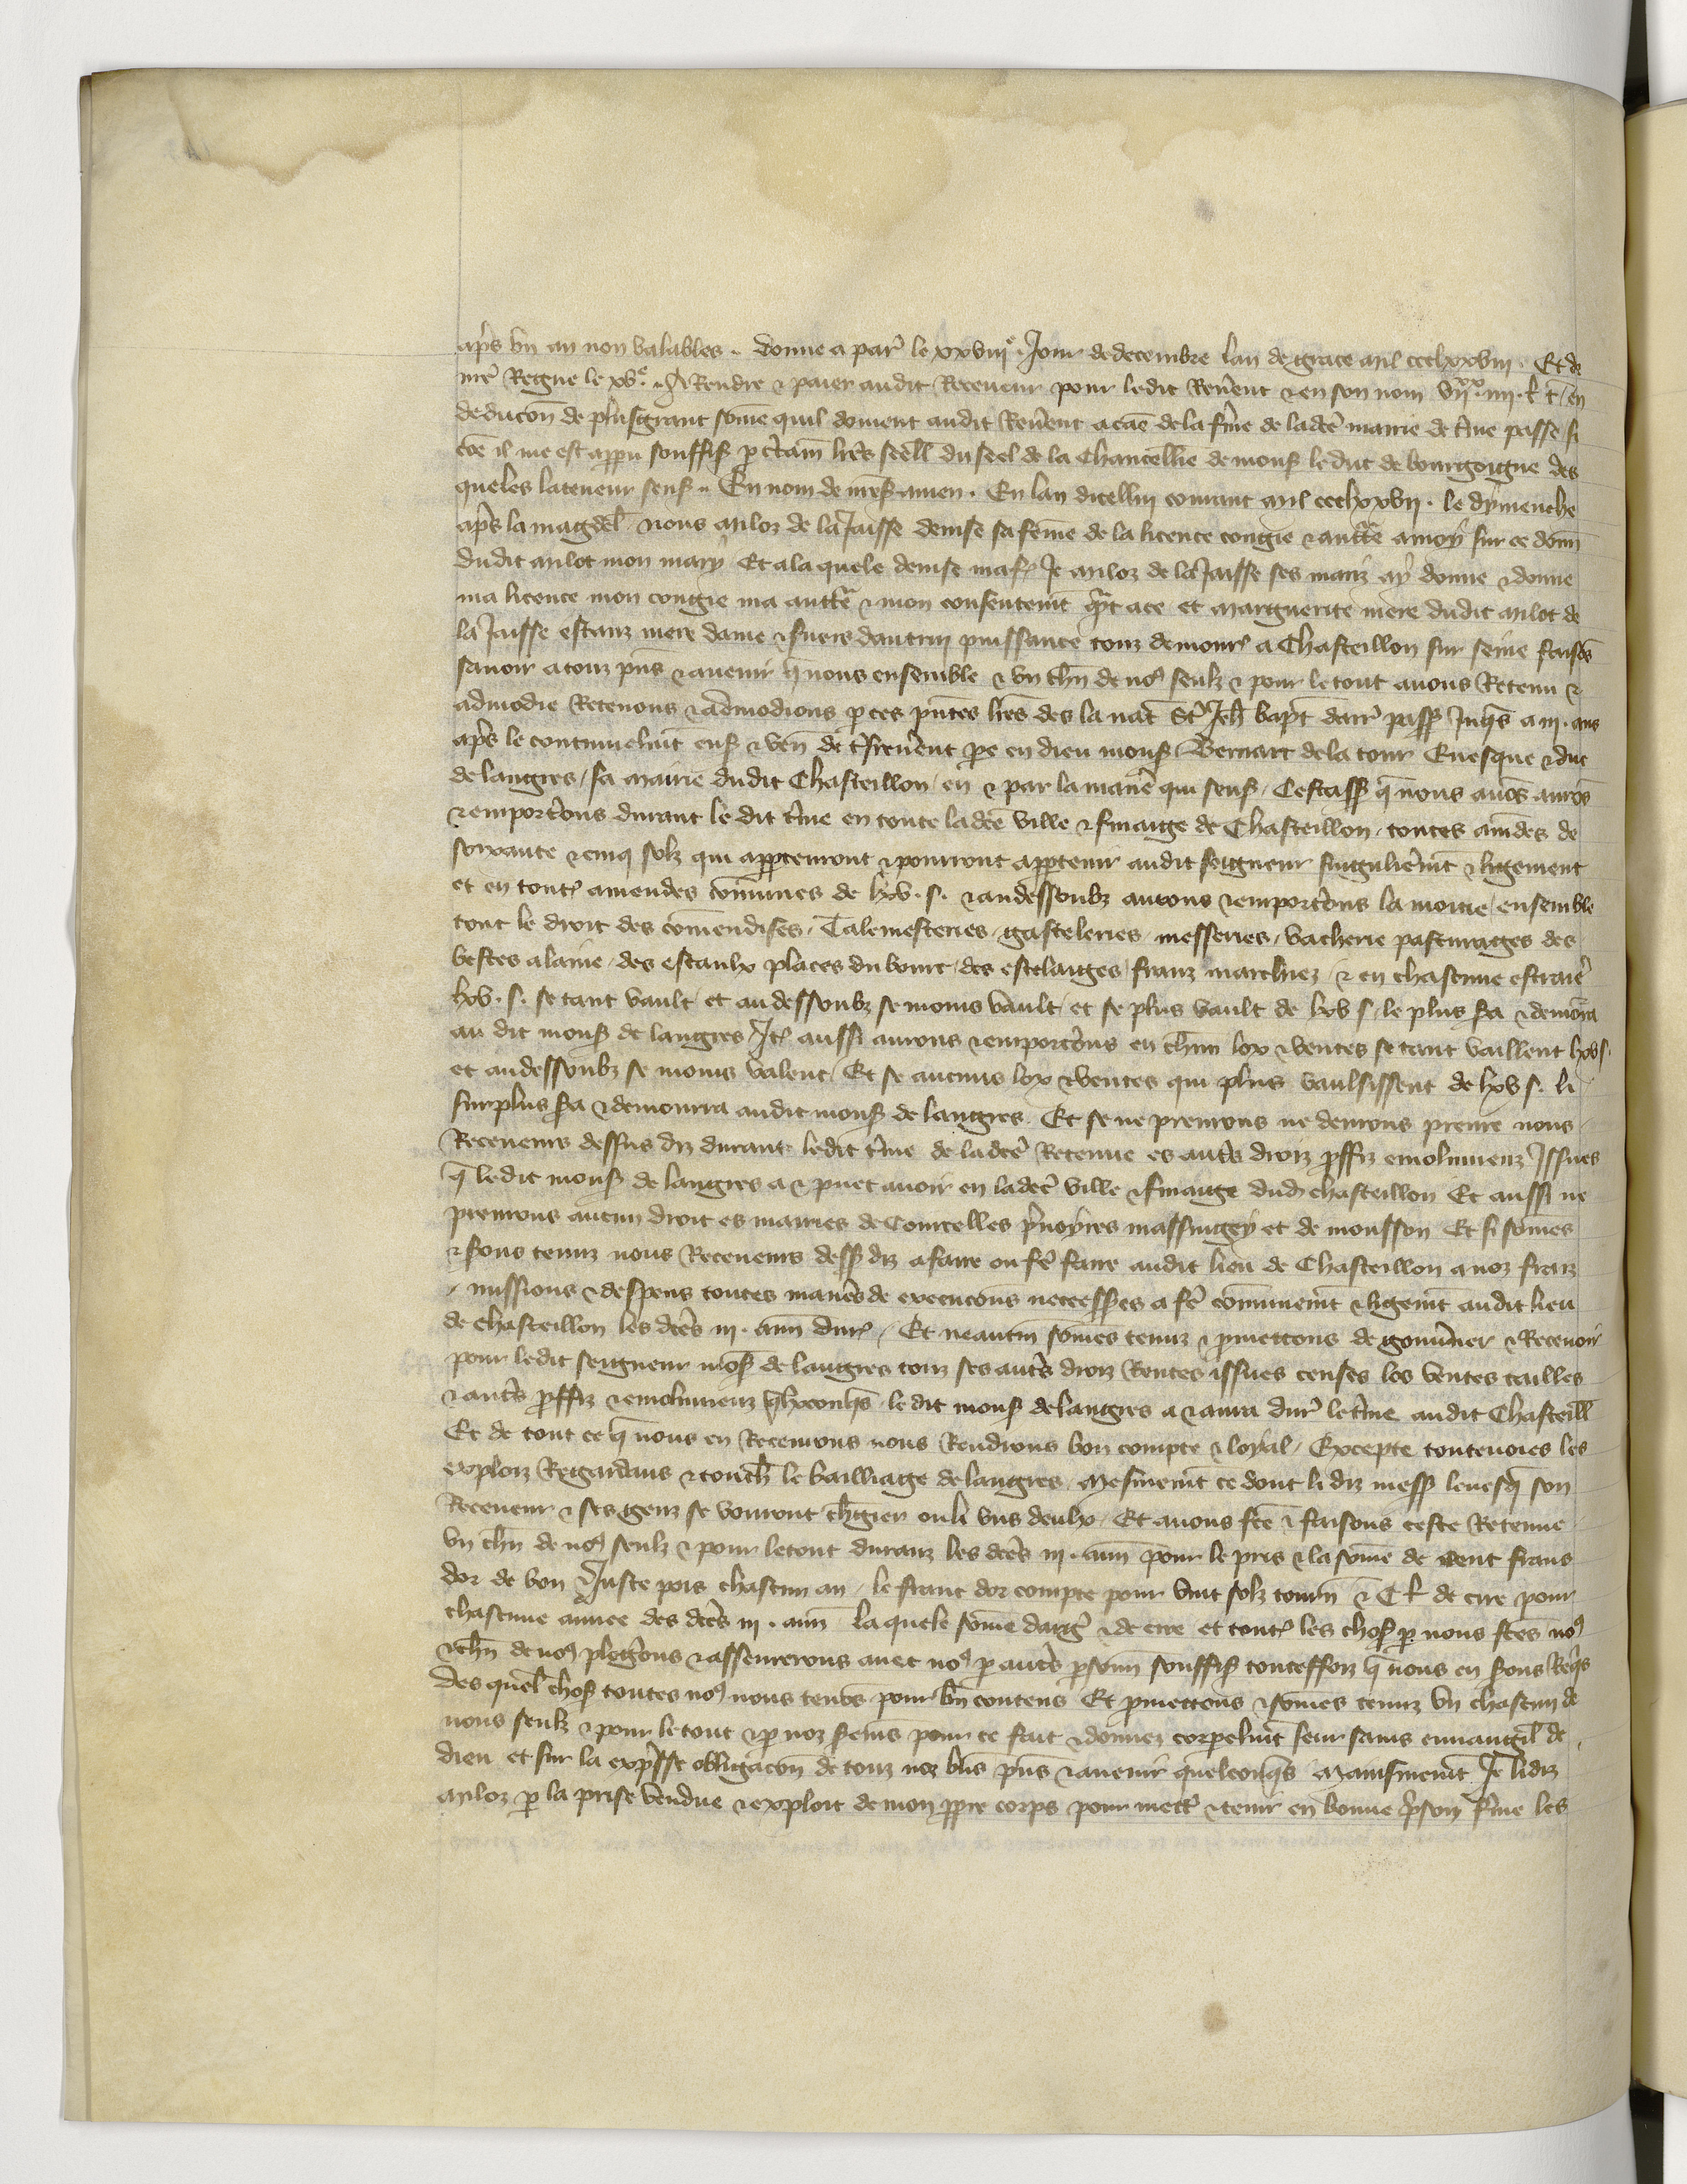 apꝛs vn an non valables .. donne a par̾ le xxviiiᵉ. Jour de decembre lan de grace mil ccclxxviii . Et de
nr̄e Regne le xvᵉ. A Rendre & paier audit Receueur pour ledit Reuēent & en son nom viiˣˣ. iiii. l t̄ / en
deducōn de plusgrant som̄e quil doiuent audit Reuēent a cāe de la fr̄me de ladcē mairie de t̄me passe si
cōe il me est apparu souffis p̱ ctām lrēs seell du seel de la Chancellīe de mons le duc de bourgoigne des
queles la teneur sens .. En nom de nr̄es amen . En lan dicelluy courant mil ccclxxvii . le dymenche
apꝛs la magdel̄ nous miloz de la Jaisse denise sa fem̄e de la licence congie & auct̄te a moy sur ce donn̄
dudit milot mon mary Et a la quele denise ma f̄ Je miloz de la Jaisse ses mariz ay donne & donne
ma licence mon congie ma auct̄te & mon consentem̄t qᵃt a ce et marguerite mere dudit milot de
la Jaisse estanz mere dame & fuers dautruy puissance touz demour̄ a Chasteillon sur seine faisōs
sauoir a touz pn̄s & auenir q̄ nous ensemble & vn ch̄n de noꝰ seulz & pour le tout auons Retenu &
admodie Retenons & admodions p̱ ces pn̄tes lrēs des la nat̄ st̄ Jeh̄ bapt̄ darr̄ pass̄ Jusqs̄ a iii . ans
apꝛs le continuelm̄t ens & ven̄ de t̄sreuēent pe en dieu mons Bernart de la tour Euesque & duc
de langres / sa mairie dudit Chasteillon / en & par la manē qui sens / Cestass̄ q̄ nous auōs aurōs
& emportōns durant le dit t̄me en toute ladcē ville & finaige de Chasteillon / toutes am̄des de
soixante & cinq solz qui appartenront & pourront appartenir audit seigneur singulierem̄t & ligement
et en tout̄ amendes com̄unes de lxv . s . & audessoubz aurons & emportōns la moitie / ensemble
tout le droit des com̄endises / Talemesteries / gasteleries / messeries / vacherie pasturaiges des
bestes alaine / des estaulx places du bourc / des estelaiges franz marchiez / & en chascune estraiē
lxv . s . se tant vault / et au dessoubz se moins vault / et se plus vault de lxv s / le plus s̄a & demōra
au dit mons de langres Jt̄ aussi aurons & emportōns en ch̄un lox & ventes se tant vaillent lxv s .
et audessoubz se moins valent / Et se aucuns lox & ventes qui plus vaulsissent de lxv s . li
surplus s̄a & demourra audit mons de langres . Et se ne prenrons ne deurons prenre nous
Receueurs dessus diz durant ledit t̄me de ladcē Retenue es autꝛs droiz p̱ffiz emolumenz Jssues
q̄ ledit mons de langres a & puet auoir en ladcē ville & finaige dud̄ chasteillon Et aussi ne
prenrons aucun droit es mairies de Courcelles pꝛnoyres massingey et de mousson Et si som̄es
& s̄ons tenuz nous Receueurs dess̄ diz a faire ou fē faire audit lieu de Chasteillon a noz fraiz
/ missions & despens toutes manēs de execucōns neccess̄es a fē com̄unem̄t & ligem̄t audit lieu
de chasteillon les dcēs iii . ann̄ dur̄ / Et neantm̄ som̄es tenuz & p̱mettons de gouūner & Receuoir
pour ledit seigneur mōs de langres touz ses autꝛs droiz Rentes issues censes los ventes tailles
& autꝛs p̱ffiz & emolumenz q̄lxconqs̄ ledit mons de langres a & aura dur̄ le t̄me audit Chasteill̄
Et de tout ce q̄ nous en Receurons nous Rendrons bon compte & loyal / Excepte toutenoies les
exploiz Regardans & touch̄ le bailliaige de langres / Mesmem̄t ce dont li diz mess̄ leuesq̄ son
Receueur & ses genz se vouront ch̄gier ou li vns deulx / Et auons fcē & faisons ceste Retenue
vn ch̄n de noꝰ seulz & pour le tout duranz les dcēs iii . ann̄ pour le pris & la som̄e de cent frans
dor de bon & Juste pois chascun an / le franc dor compte pour vint solz tourn̄ & C l de cire pour
chascune annee des dcēs iii . ann̄ la quele som̄e darḡ & de cire et tout̄ les chos̄ p̱ nous fcēs noꝰ
& ch̄n de noꝰ plegōns & asseurerons auec noꝰ p̱ autꝛs p̱sonn̄ souffis̄ touteffoiz q̄ nous en s̄ons Reqs̄
des quel̄ chos̄ toutes noꝰ nous tenōs pour bn̄ contens Et p̱mettons & som̄es tenuz vn chascun de
nous seulz & pour le tout & p̱ noz sem̄s pour ce fait & donnez corpelm̄t seur sains euuangil̄ de
dieu et sur la exp̱sse obligacōn de touz noz bn̄s pn̄s & auenir quelconqs̄ Mainsmem̄t Je lidiz
miloz p̱ la prise vendue & exploit de mon p̱pre corps pour mett̄ & tenir en bonne pꝛson f̄me les